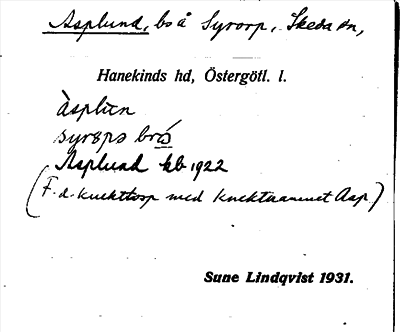 Asplund, bs å Syrorp, Skeda sn,
Hanekinds hd, Östergötl. l.
Asplund kb 1922
(F.d. knekttorp med knektnamnet Asp)
Sune Lindqvist 1931.